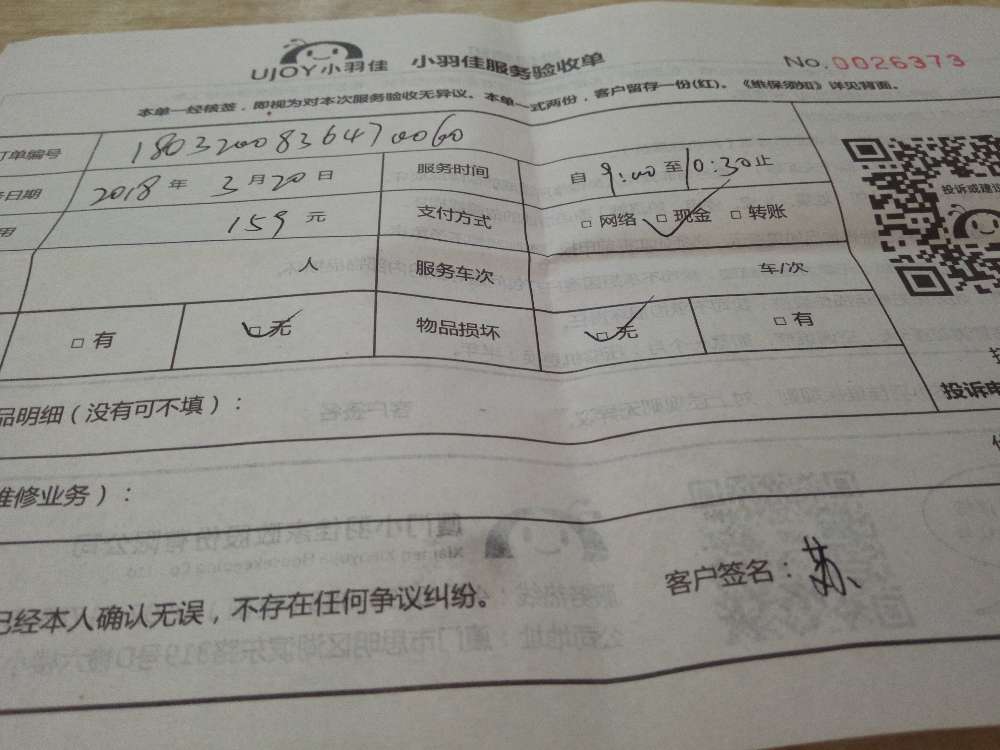 UJOY小羽佳 小羽佳服务验收单 No.0026373
本单一经核签，即视为对本次服务验收无异议。本单一式两份，客户留存一份(红)。《维保须知》详见背面。
订单编号 1803200836470060
日期 2018年3月20日 服务时间 自9:00至10:30止
用 159元 支付方式 □网络 □现金 □转账
人 服务车次 车/次
□有 □无 物品损坏 □无 □有
投诉或建议
投诉电
品明细（没有可不填）：
维修业务）：
已经本人确认无误，不存在任何争议纠纷。 客户签名：苏